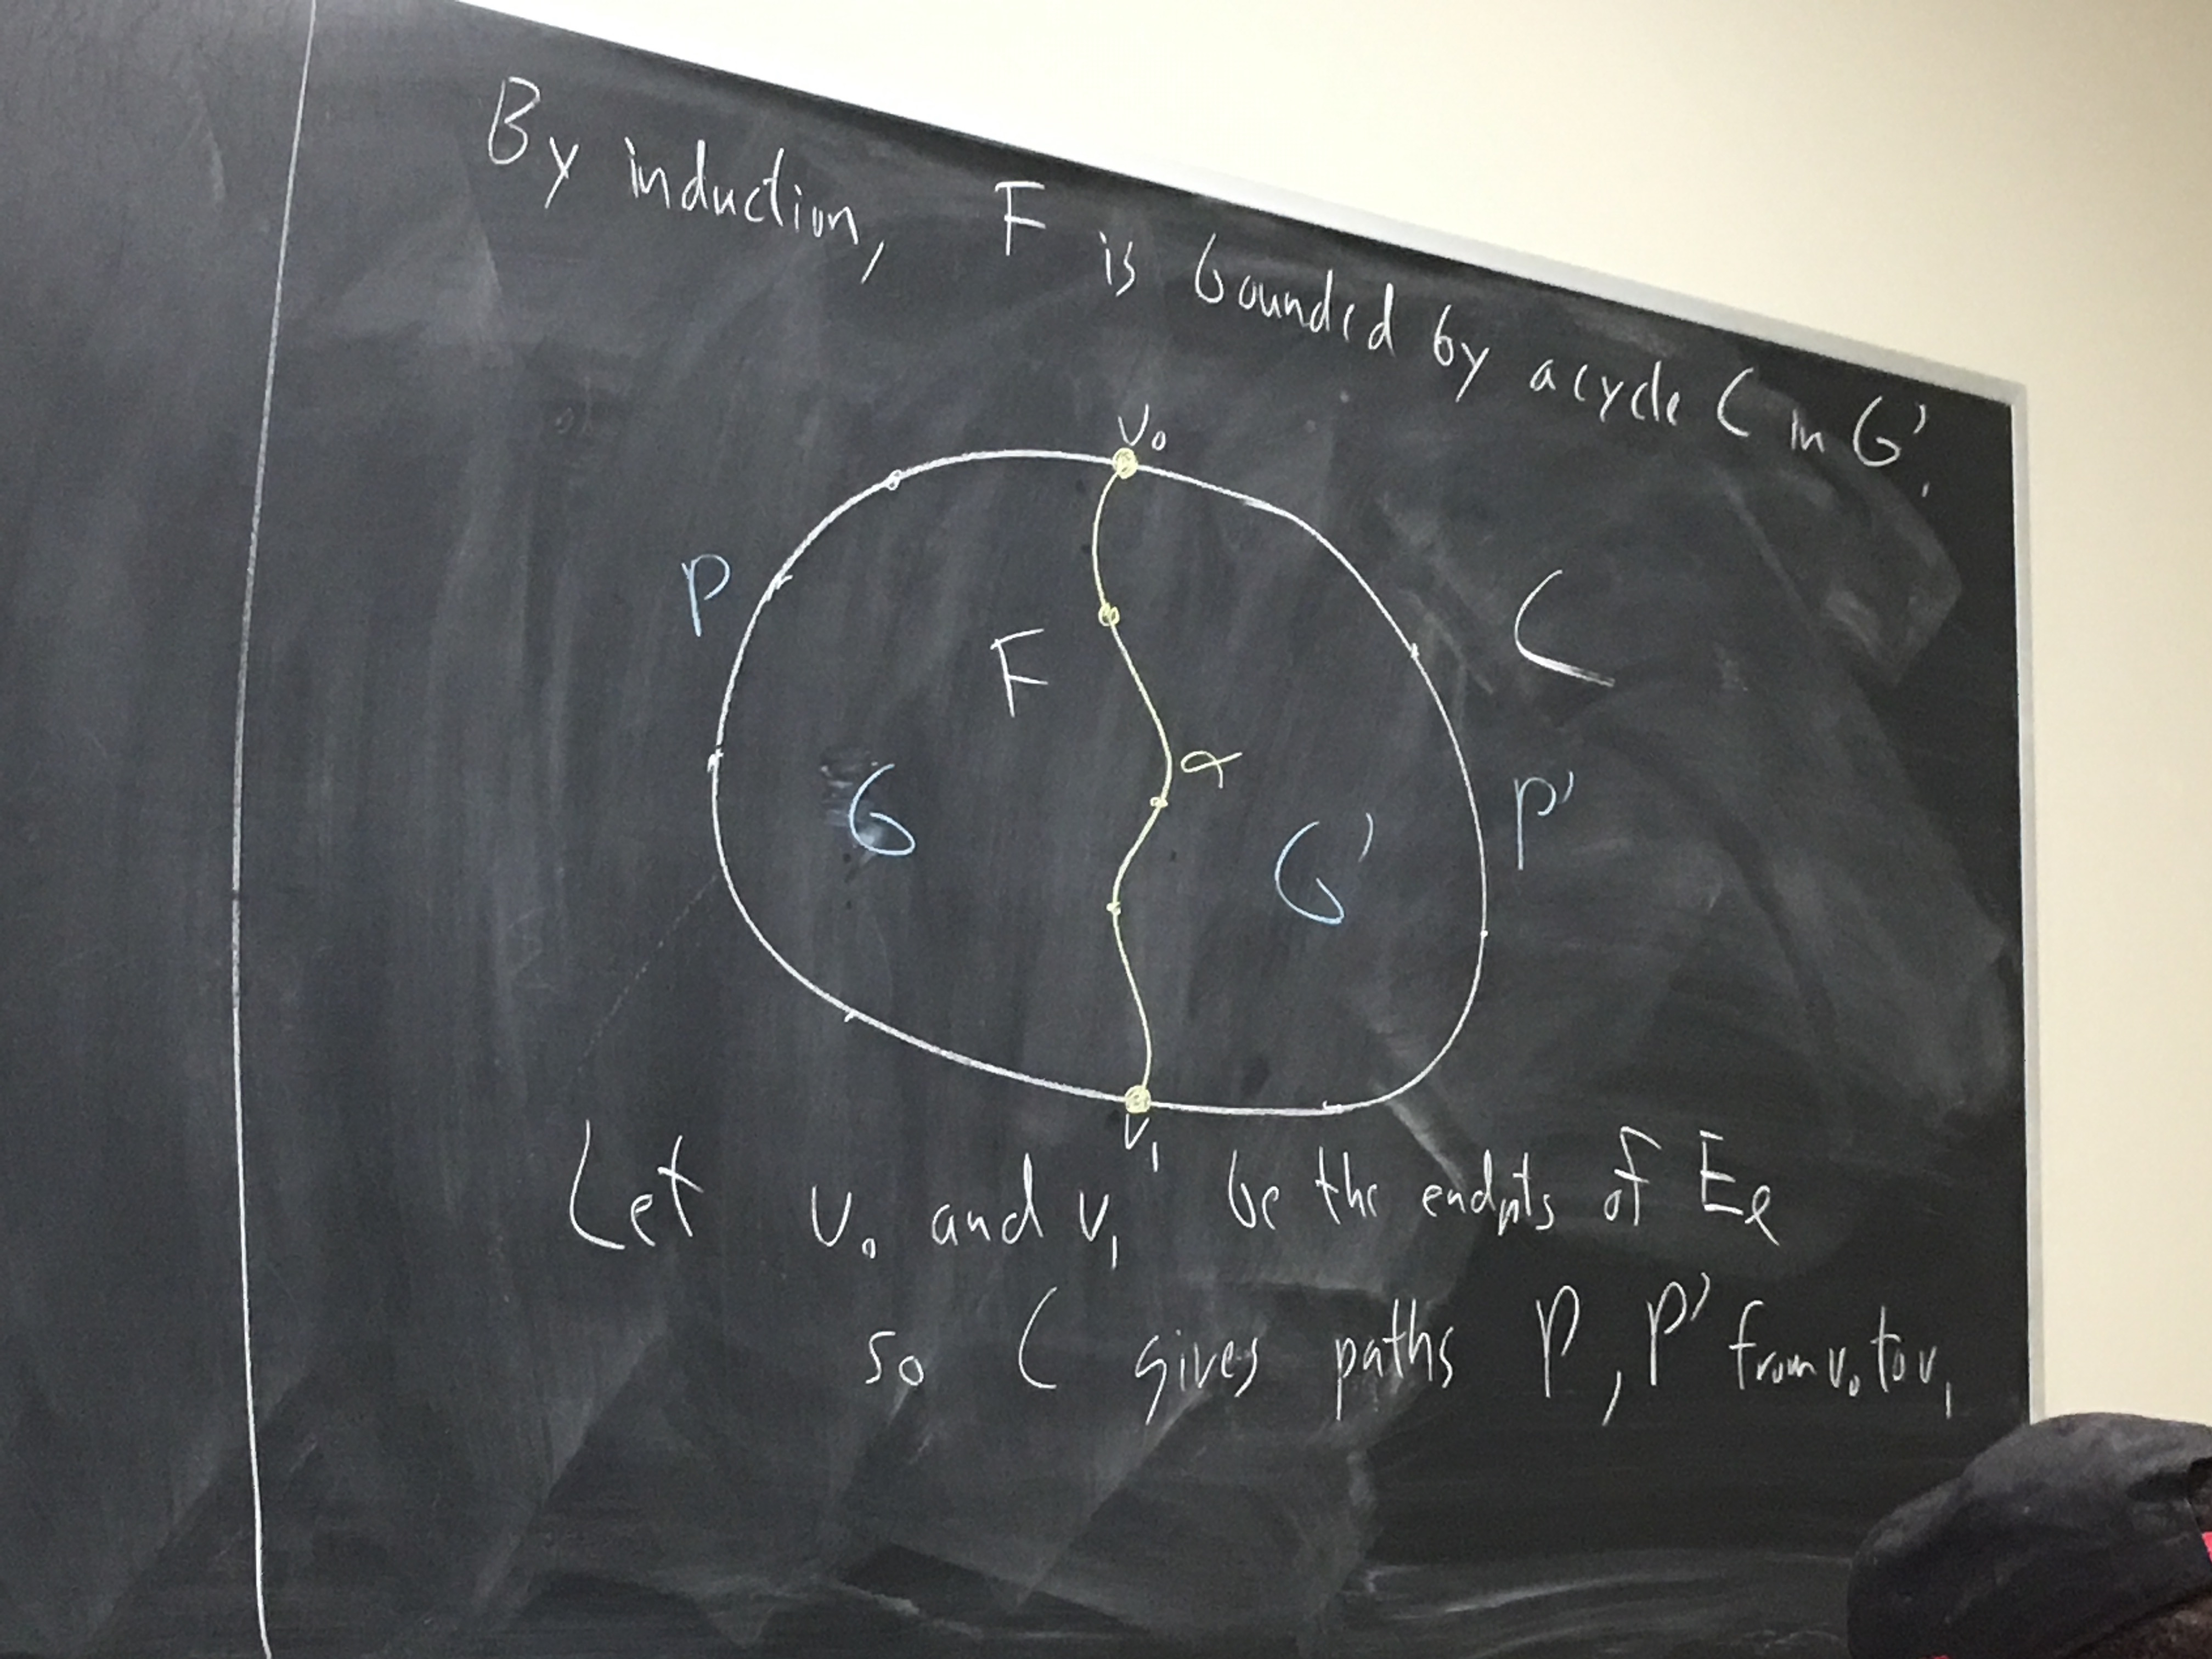 By induction, F is bounded by a cycle C in G'.
v₀
P
F
C
α
G
G'
P'
v₁
Let v₀ and v₁ be the endpts of Eℓ
so C gives paths P, P' from v₀ to v₁